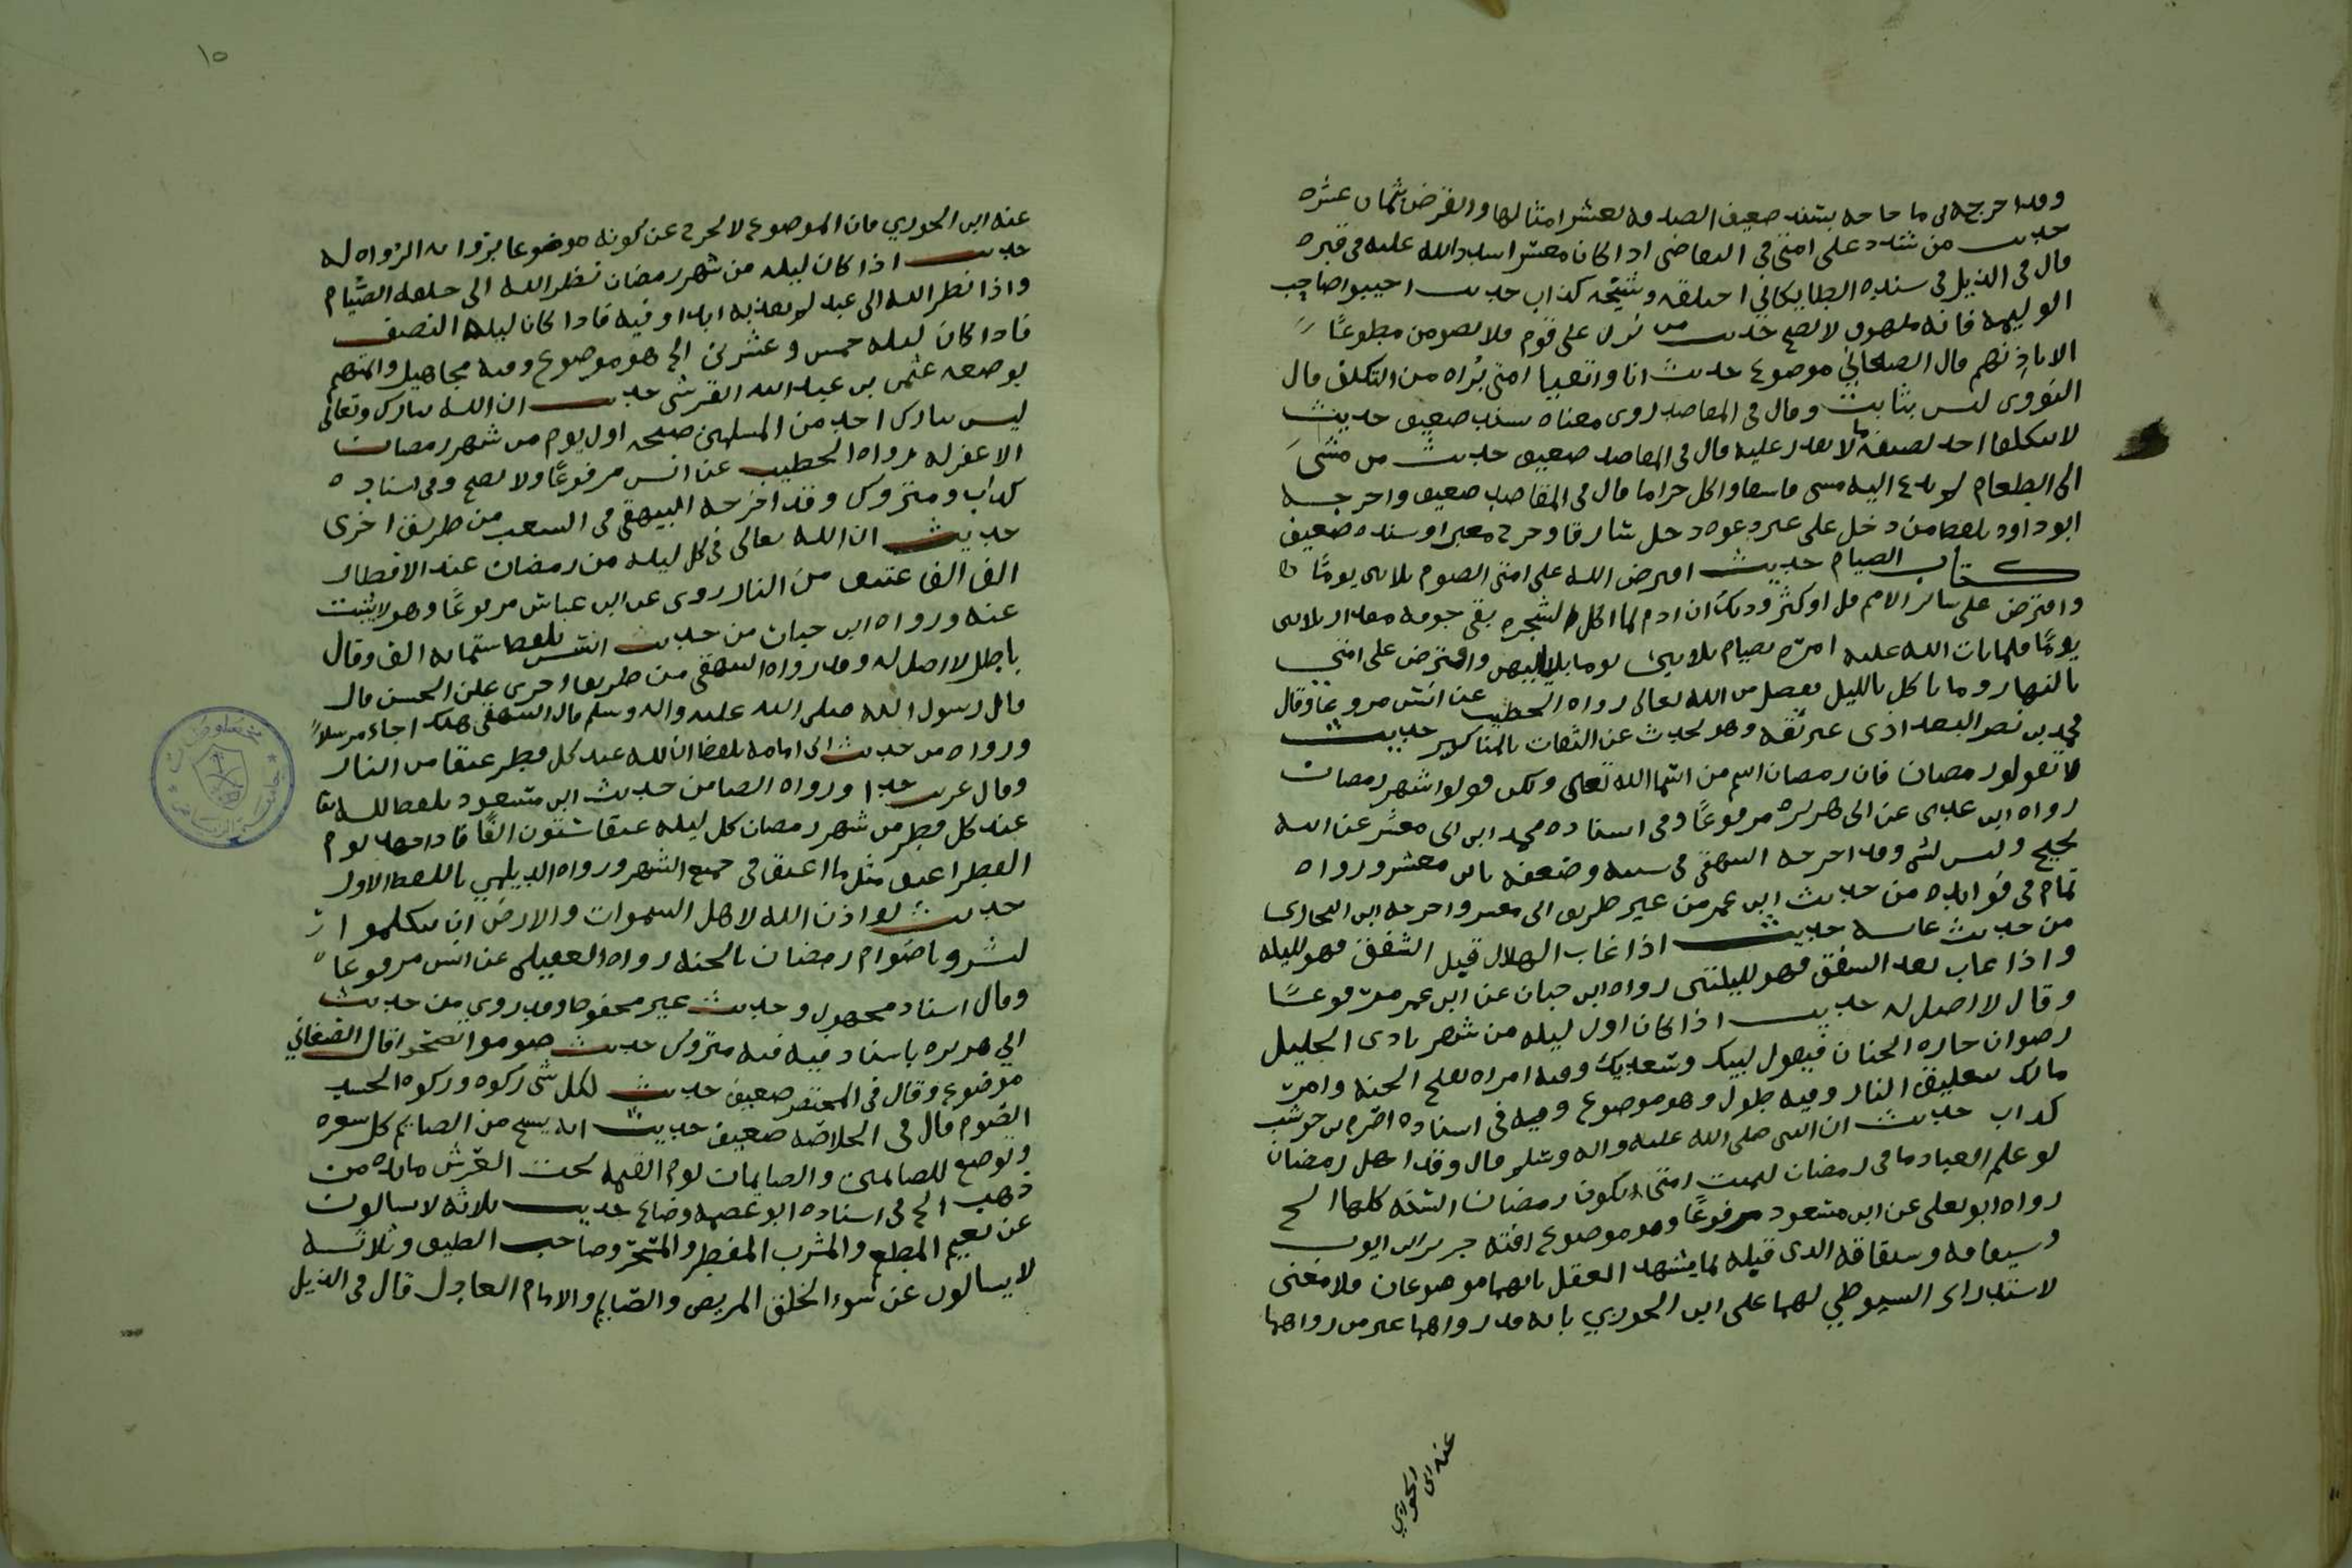 وقد اخرجه ابن ماجه بسند ضعيف الصدقه بعشر امثالها والقرض بثمان عشره
حديث من شدد على امتي في التقاضي اذا كان معسرا شدد الله عليه في قبره
قال في الذيل في سنده الطايكاني اختلقه وشيخه كذاب حديث اجيبوا صاحب
الوليمه فانه ملهوف لا يصح حديث من نزل على قوم فلا يصومن تطوعًا
الا باذنهم قال الصغاني موضوع حديث انا واتقيا امتي برُاه من التكلف قال
النووي ليس بثابت وقال في المقاصد روى معناه بسند ضعيف حديث
لا يتكلفن احد لضيفه ما لا يقدر عليه قال في المقاصد ضعيف حديث من مشىَ
الى الطعام لم يدع اليه مشى فاسقا واكل حراما قال في المقاصد ضعيف واخرجه
ابو داود بلفظ من دخل على غير دعوه دخل سارقا وخرج مغيرا وسنده ضعيف
كتاب الصيام حديث افترض الله على امتي الصوم ثلاثين يومًا
وافترض على سائر الامم قل او كثر وذلك ان ادم لما اكل الشجره بقى في جوفه مقدار ثلاثين
يومًا فلما تاب الله عليه امره بصيام ثلاثين يوما بلياليهن وافترض على امتي
بالنهار وما ناكل بالليل بفضل من الله تعالى رواه الخطيب عن انس مرفوعا وقال
محمد بن نصر البغدادي غير ثقه وهو يحدث عن الثقات بالمناكير حديث
لا تقولو رمضان فان رمضان اسم من اسما الله تعالى ولكن قولوا شهر رمضان
رواه ابن عدي عن ابي هريره مرفوعًا وفي اسناده محمد ابن ابي معشر عن ابيه
نجيح وليس بشي وقد اخرجه البيهقي في سننه وضعفه بابي معشر ورواه
تمام في فوايده من حديث ابن عمر من غير طريق ابي معشر واخرجه ابن النجاري
من حديث عايشه حديث اذا غاب الهلال قبل الشفق فهو لليله
واذا غاب بعد الشفق فهو لليلتين رواه ابن حبان عن ابن عمر مرفوعـًا
وقال لا اصل له حديث اذا كان اول ليله من شهر نادى الجليل
رضوان خازن الجنان فيقول لبيك وسعديك وفيه امراه بفتح الجنه وامر
مالك بتغليق النار وفيه طول وهو موضوع وفيه في اسناده اصرم بن حوشب
كذاب حديث ان النبي صلى الله عليه واله وسلم قال وقد اهل رمضان
لو علم العباد ما في رمضان لتمنت امتي ان يكون رمضان السنه كلها الخ
رواه ابو يعلى عن ابن مسعود مرفوعًا وهو موضوع افته جرير ابن ايوب
وسياقه وسياقه الذي قبله مما يشهد العقل بانهما موضوعان فلا معنى
لاستدراك السيوطي لهما على ابن الجوزي بانه قد رواهما غير من رواهما
عنه ابن الجوزي
١٥
عنه ابن الجوزي فان الموضوع لا يخرج عن كونه موضوعا برواية الرُواه له
حديث اذا كان ليله من شهر رمضان نظر الله الى خلقه الصيام
واذا نظر الله الى عبد لم يعذبه ابدا وفيه فاذا كان ليله النصف
فاذا كان ليله خمس وعشرين الخ هو موضوع وفيه مجاهيل والمتهم
بوضعه عثمن بن عبد الله القرشي حديث ان الله تبارك وتعالى
ليس بتارك احد من المسلمين صبيحه اول يوم من شهر رمضان
الا غفر له رواه الخطيب عن انس مرفوعًا ولا يصح وفي اسناده
كذاب ومتروك وقد اخرجه البيهقي في الشعب من طريق اخرى
حديث ان الله تعالى في كل ليله من رمضان عند الافطار
الف الف عتيق من النار روى عن ابن عباس مرفوعًا وهو لا يثبت
عنه ورواه ابن حبان من حديث انس بلفظ ستمايه الف وقال
باطل لا اصل له وقد رواه البيهقي من طريق اخرى عن الحسن قال
قال رسول الله صلى الله عليه واله وسلم قال البيهقي هكذا جاء مرسلاً
ورواه من حديث ابي امامه بلفظ ان لله عند كل فطر عتقا من النار
وقال غريب جدا ورواه ايضا من حديث ابن مسعود بلفظ لله تعا
عند كل فطر من شهر رمضان كل ليله عتقا ستون الفًا فاذا كان يوم
الفطر اعتق مثل ما اعتق في جميع الشهر ورواه الديلمي باللفظ الاول
حديث لو اذن الله لاهل السموات والارض ان يتكلموا
لبشروا صوام رمضان بالجنه رواه العقيلي عن انس مرفوعا
وقال اسناد مجهول وحديث غير محفوظ وقد روي من حديث
ابي هريره باسناد فيه متروك حديث صوموا تصحوا قال الصغاني
موضوع وقال في المختصر ضعيف حديث لكل شي زكوه وزكوه الجسد
الصوم قال في الخلاصه ضعيف حديث انه يسبح من الصايم كل شعره
ويوضع للصايمين والصايمات يوم القيمه تحت العرش مايده من
ذهب الخ في اسناده ابو عصمه وضاع حديث ثلاثه لا يسالون
عن نعيم المطعم والمشرب المفطر والمتسحر وصاحب الضيف وثلاثـه
لا يسالون عن سوء الخلق المريض والصايم والامام العادل قال في الذيل